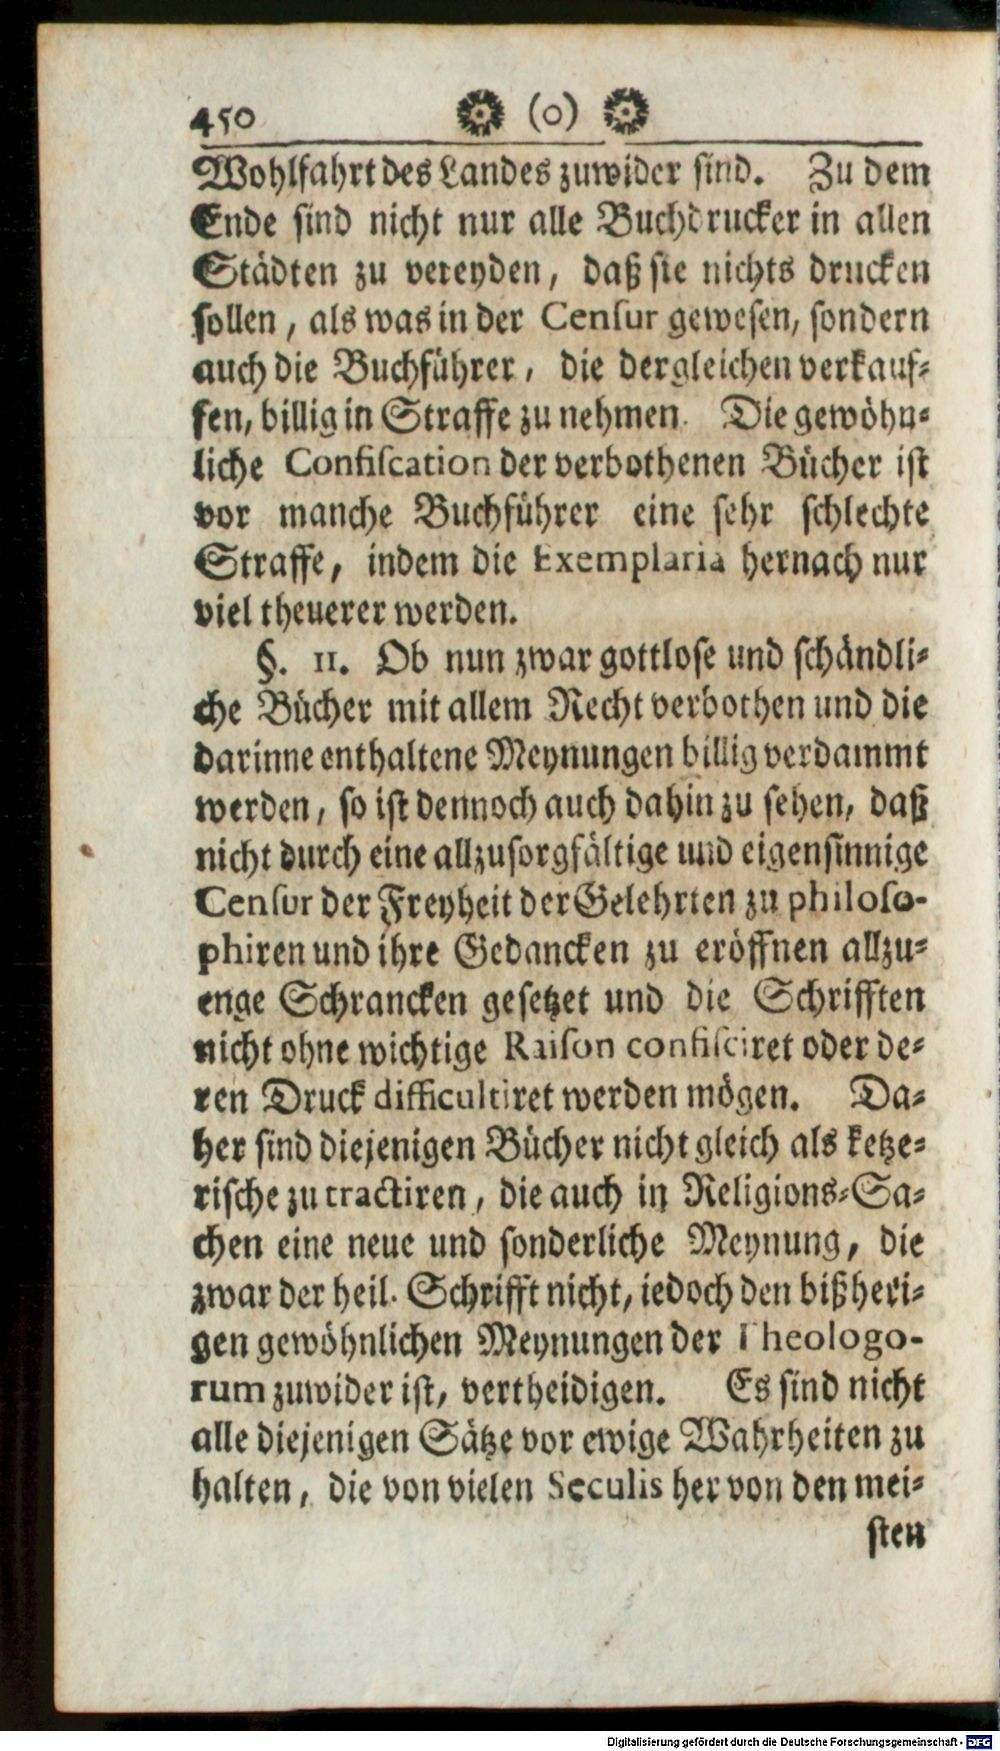 450 (o)
Wohlfahrt des Landes zuwider sind. Zu dem
Ende sind nicht nur alle Buchdrucker in allen
Städten zu vereyden, daß sie nichts drucken
sollen, als was in der Censur gewesen, sondern
auch die Buchführer, die dergleichen verkauf-
fen, billig in Straffe zu nehmen. Die gewöhn-
liche Confiscation der verbothenen Bücher ist
vor manche Buchführer eine sehr schlechte
Straffe, indem die Exemplaria hernach nur
viel theuerer werden.
§. 11. Ob nun zwar gottlose und schändli-
che Bücher mit allem Recht verbothen und die
darinne enthaltene Meynungen billig verdammt
werden, so ist dennoch auch dahin zu sehen, daß
nicht durch eine allzusorgfältige und eigensinnige
Censur der Freyheit der Gelehrten zu philoso-
phiren und ihre Gedancken zu eröffnen allzu-
enge Schrancken gesetzet und die Schrifften
nicht ohne wichtige Raison confisciret oder de-
ren Druck difficultiret werden mögen. Da-
her sind diejenigen Bücher nicht gleich als ketze-
rische zu tractiren, die auch in Religions-Sa-
chen eine neue und sonderliche Meynung, die
zwar der heil. Schrifft nicht, iedoch den bißheri-
gen gewöhnlichen Meynungen der Theologo-
rum zuwider ist, vertheidigen. Es sind nicht
alle diejenigen Sätze vor ewige Wahrheiten zu
halten, die von vielen Seculis her von den mei-
sten
Digitalisierung gefördert durch die Deutsche Forschungsgemeinschaft - DFG